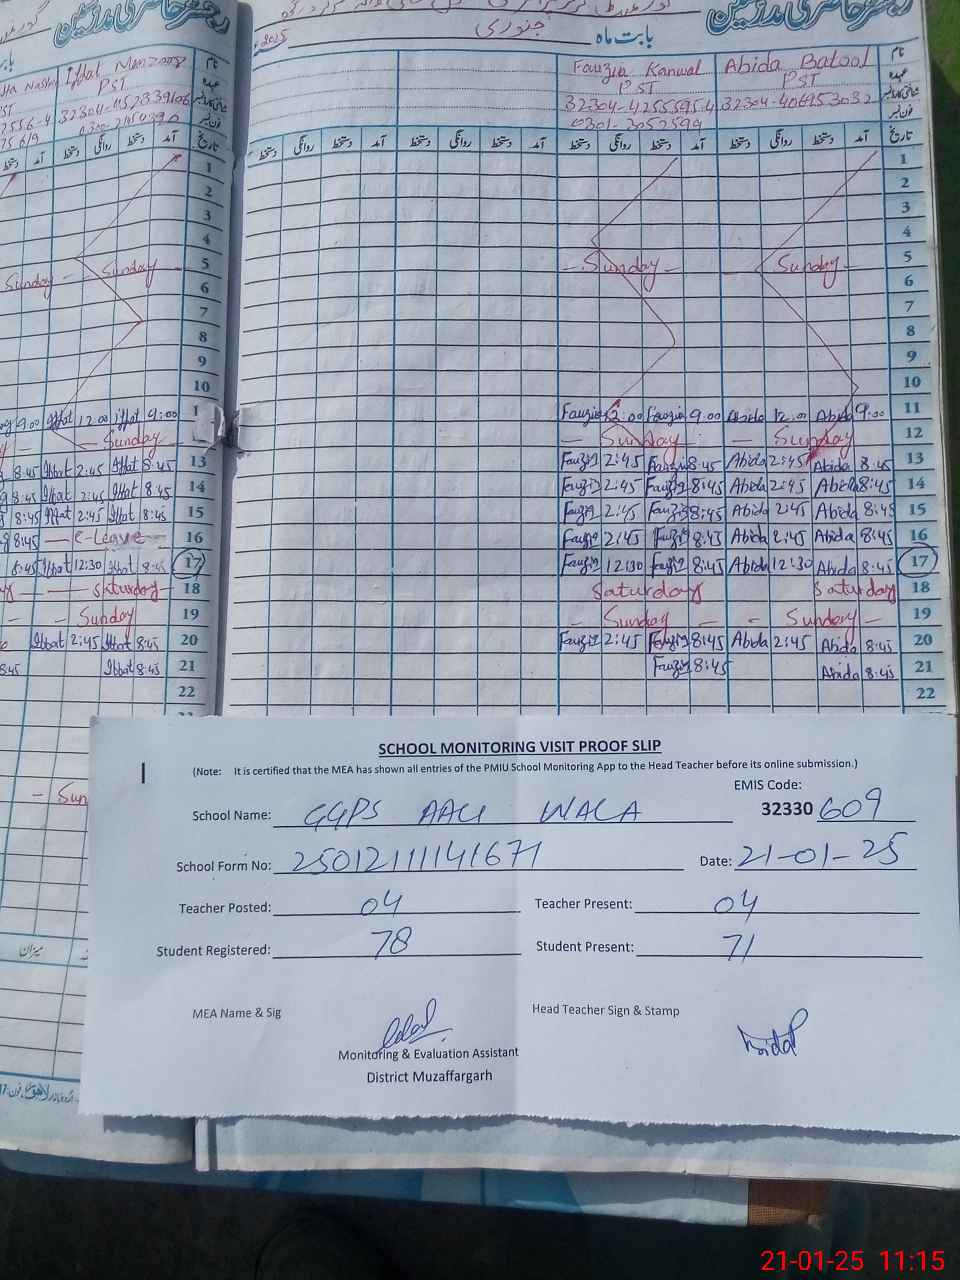 رجسٹر حاضری مدرسین
بابت ماہ جنوری 2025
نام Iffat Manzoor Fauzia Kanwal Abida Batool
عہدہ PST PST PST
32304-4255595-4 32304-4069530
فون نمبر 0301-3052594
تاریخ آمد دستخط روانگی دستخط آمد دستخط روانگی دستخط آمد دستخط روانگی دستخط
1
2
3
4
5 Sunday Sunday Sunday Sunday
6
7
8
9
10
9:00 Iffat 12:00 Iffat 9:00 Fauzia 12:00 Fauzia 9:00 Abida 12:00 Abida 9:00 11
Sunday Sunday Sunday 12
8:45 Iffat 2:45 Iffat 8:45 13 Fauzia 2:45 Fauzia 8:45 Abida 2:45 Abida 8:45 13
8:45 Iffat 2:45 Iffat 8:45 14 Fauzia 2:45 Fauzia 8:45 Abida 2:45 Abida 8:45 14
8:45 Iffat 2:45 Iffat 8:45 15 Fauzia 2:45 Fauzia 8:45 Abida 2:45 Abida 8:45 15
8:45 e-Leave 16 Fauzia 2:45 Fauzia 8:45 Abida 2:45 Abida 8:45 16
8:45 Iffat 12:30 Iffat 8:45 17 Fauzia 12:30 Fauzia 8:45 Abida 12:30 Abida 8:45 17
Saturday 18 Saturday Saturday 18
Sunday 19 Sunday Sunday 19
Iffat 2:45 Iffat 8:45 20 Fauzia 2:45 Fauzia 8:45 Abida 2:45 Abida 8:45 20
8:45 Iffat 8:45 21 Fauzia 8:45 Abida 8:45 21
22 22
میزان
SCHOOL MONITORING VISIT PROOF SLIP
(Note: It is certified that the MEA has shown all entries of the PMIU School Monitoring App to the Head Teacher before its online submission.)
EMIS Code:
School Name: GGPS AALI WALA 32330 609
School Form No: 25012111141671 Date: 21-01-25
Teacher Posted: 04 Teacher Present: 04
Student Registered: 78 Student Present: 71
MEA Name & Sig Head Teacher Sign & Stamp
Monitoring & Evaluation Assistant
District Muzaffargarh
21-01-25 11:15